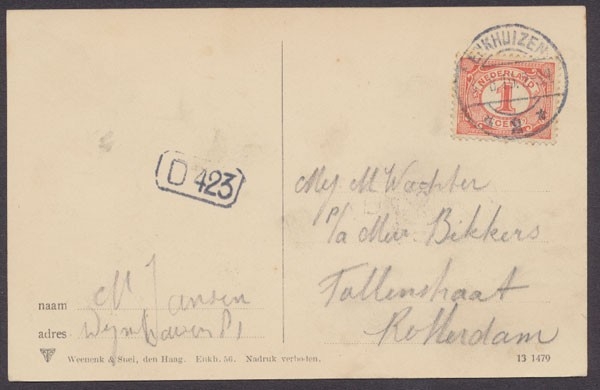 ENKHUIZEN
NEDERLAND
1
CENT
2
D 423
Mej M Wachter
p/a Mevr Bikkers
Tollenstraat
Rotterdam
naam M Jansen
adres Wijnhaven
Weenenk & Snel, den Haag. Enkh. 56. Nadruk verboten.
13 1479